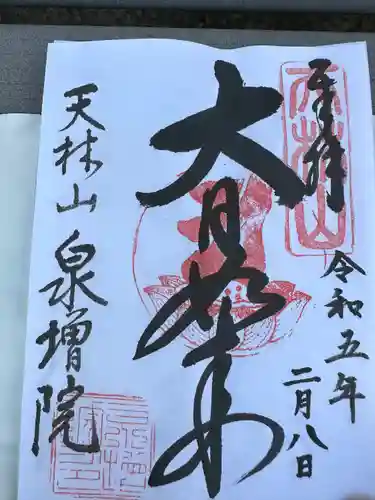 奉拝
天林山
令和五年
二月八日
大日如来
天林山
泉増院